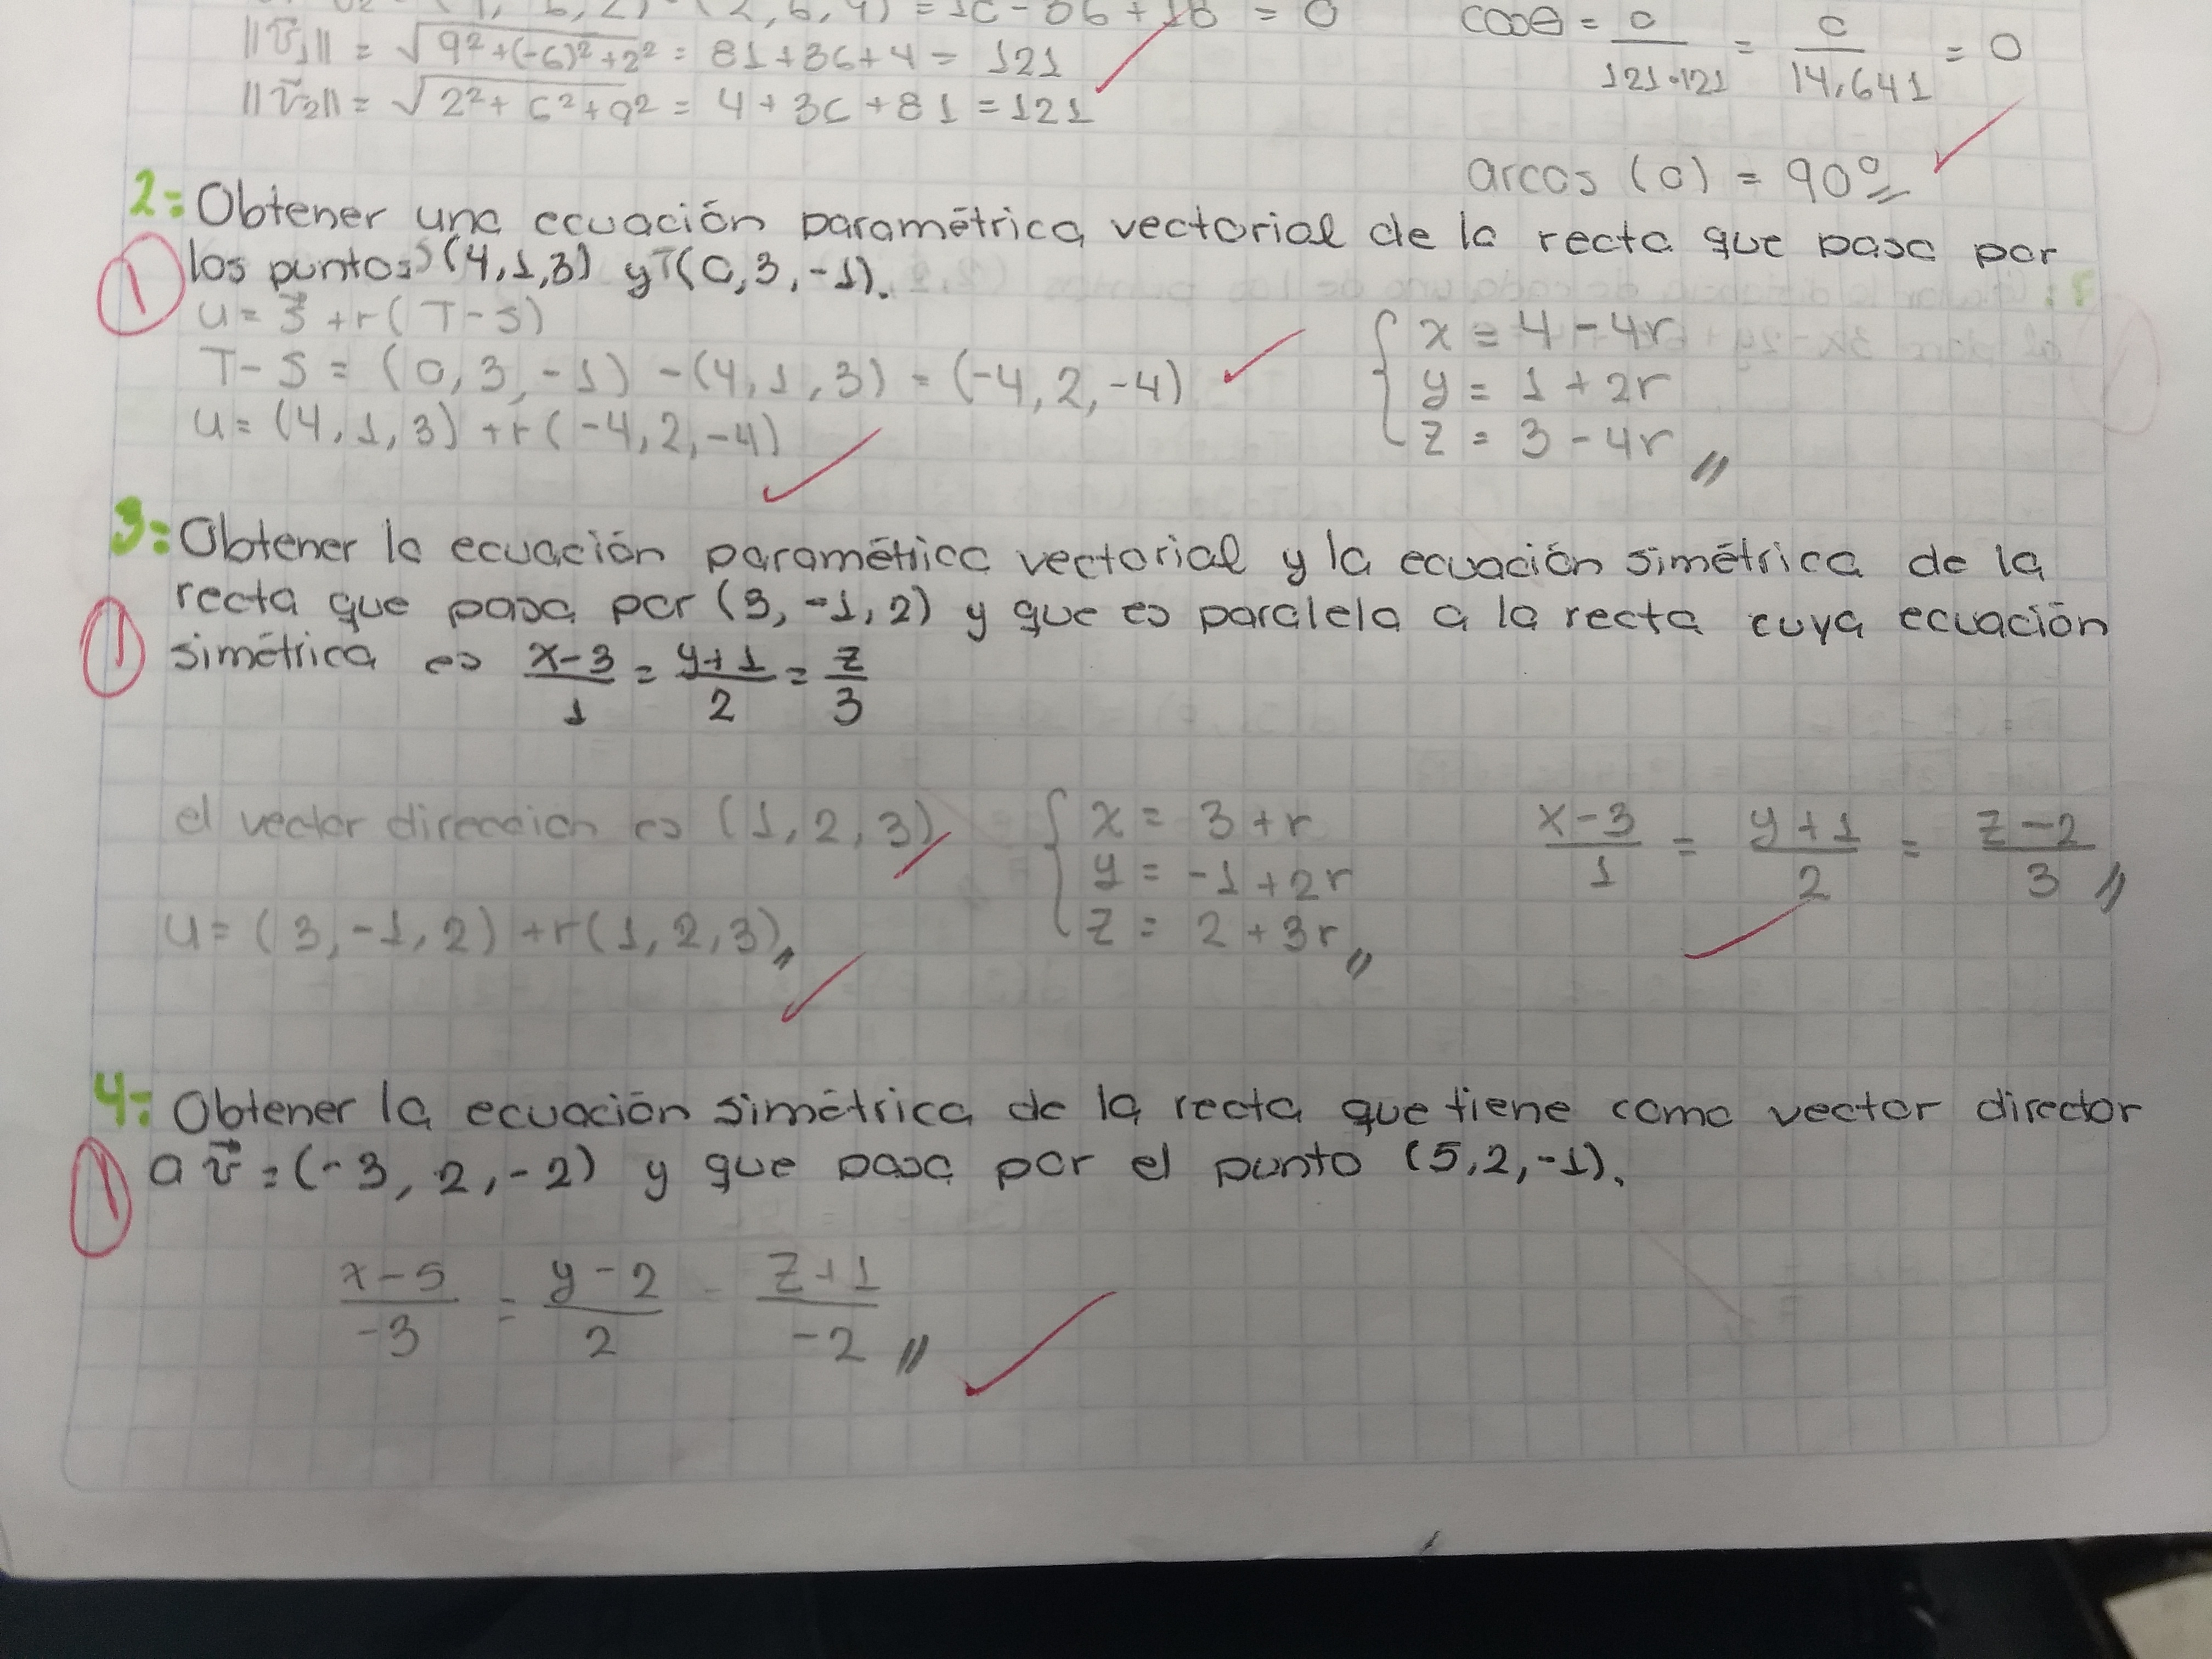 = 0
||v⃗₁|| = √9²+(-6)²+2² = 81+36+4 = 121
||v⃗₂|| = √2²+6²+9² = 4+36+81 = 121
cosθ = 0/121·121 = 0/14,641 = 0
arcos (0) = 90°
2: Obtener una ecuación paramétrica vectorial de la recta que pasa por
los puntos S(4,1,3) y T(0,3,-1).
1
u = S⃗ + r(T-S)
T-S = (0,3,-1) - (4,1,3) = (-4,2,-4)
u = (4,1,3) + r(-4,2,-4)
{ x = 4-4r
y = 1+2r
z = 3-4r //
3: Obtener la ecuación paramétrica vectorial y la ecuación simétrica de la
recta que pasa por (3,-1,2) y que es paralela a la recta cuya ecuación
1
simétrica es x-3/1 = y+1/2 = z/3
el vector dirección es (1,2,3)
u = (3,-1,2) + r(1,2,3) //
{ x = 3+r
y = -1+2r
z = 2+3r //
x-3/1 = y+1/2 = z-2/3 //
4: Obtener la ecuación simétrica de la recta que tiene como vector director
1
a v⃗ = (-3, 2, -2) y que pasa por el punto (5,2,-1).
x-5/-3 = y-2/2 - z+1/-2 //